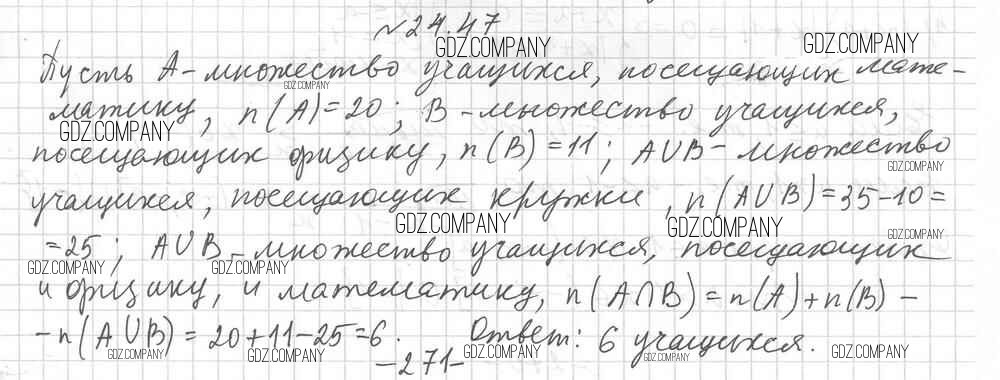 №24.47
GDZ.COMPANY GDZ.COMPANY
Пусть A – множество учащихся, посещающих мате-
GDZ.COMPANY
матику, n(A)=20; B – множество учащихся,
GDZ.COMPANY
посещающих физику, n(B)=11; A∪B – множество
GDZ.COMPANY
учащихся, посещающих кружки, n(A∪B)=35–10=
GDZ.COMPANY GDZ.COMPANY GDZ.COMPANY
=25; A∪B – множество учащихся, посещающих
GDZ.COMPANY GDZ.COMPANY
и физику, и математику, n(A∩B)=n(A)+n(B)–
–n(A∪B)=20+11–25=6. Ответ: 6 учащихся.
GDZ.COMPANY GDZ.COMPANY GDZ.COMPANY GDZ.COMPANY GDZ.COMPANY
–271–